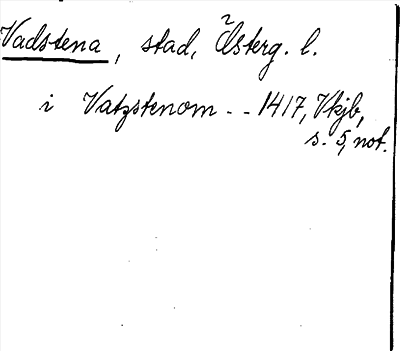 Vadstena, stad, Österg. l.
i Vatzstenom - - 1417, Vkjb,
s. 5, not.